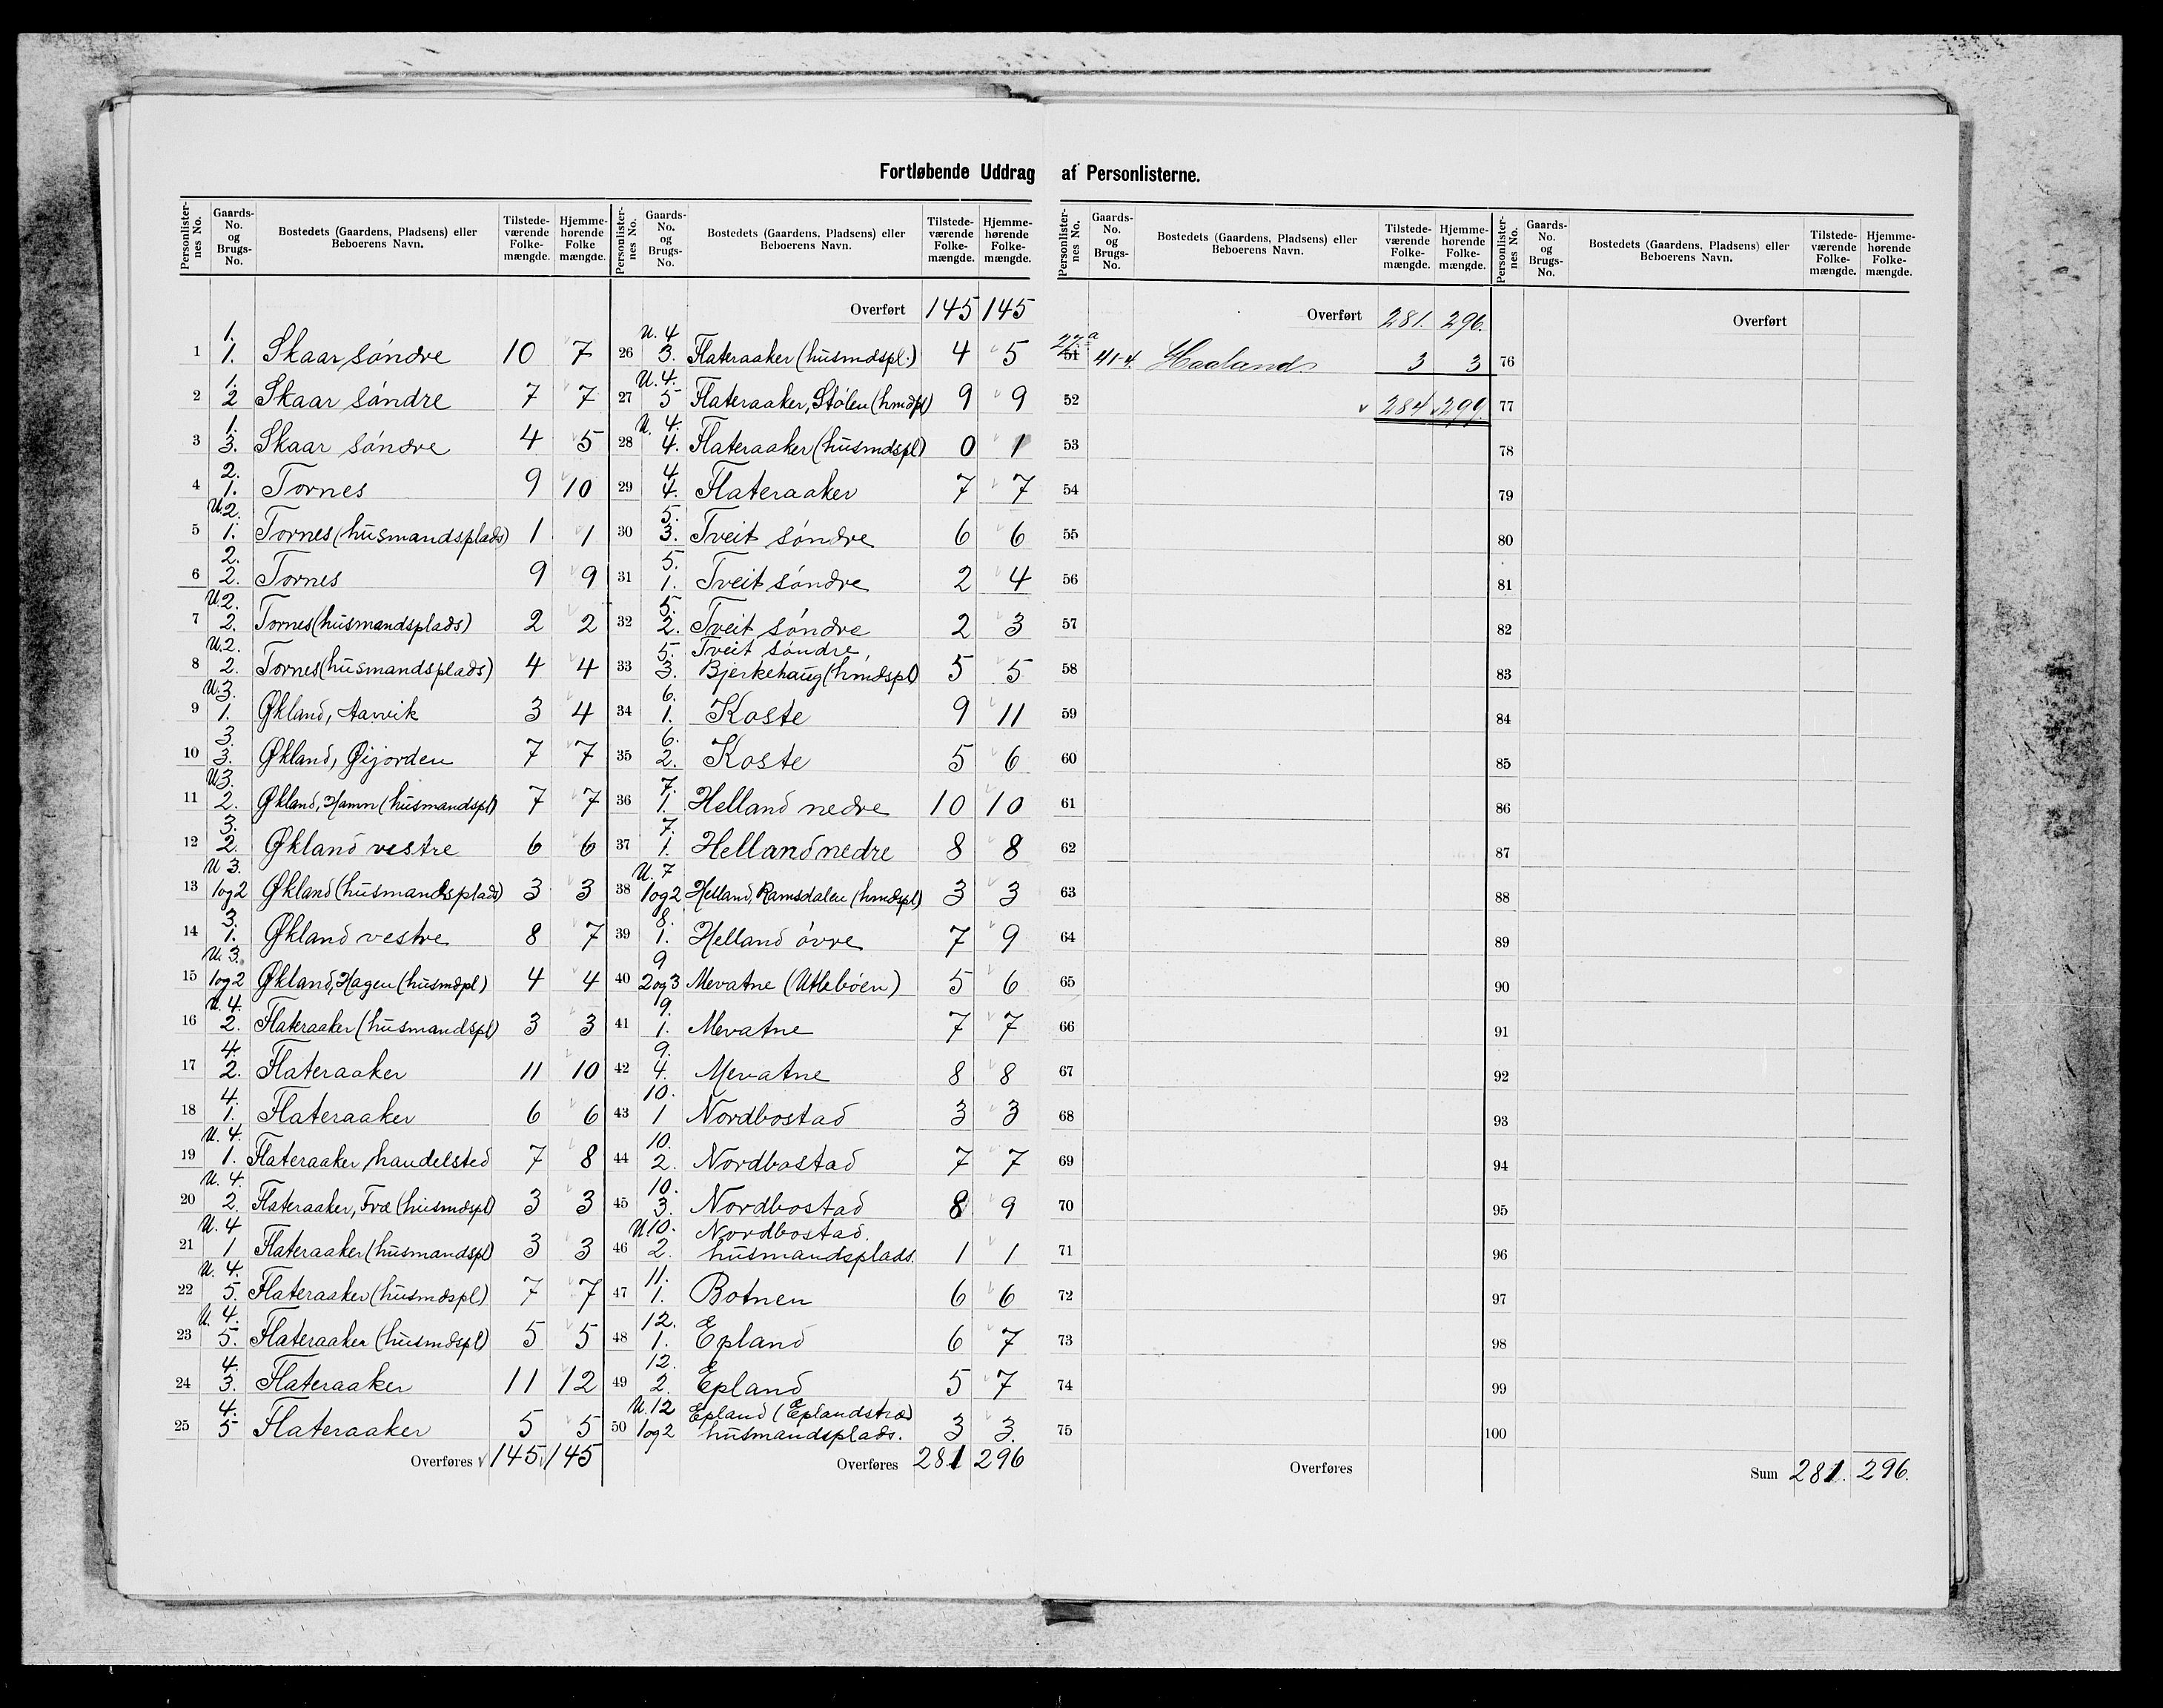 Fortløbende Uddrag af Personlisterne.
Personlisternes No. Gaards-No. og Brugs-No. Bostedets (Gaardens, Pladsens) eller Beboerens Navn. Tilstedeværende Folkemængde. Hjemmehørende Folkemængde.
1 1. 1. Skaar søndre 10 7
2 1. 2 Skaar søndre 7 7
3 1. 3. Skaar søndre 4 5
4 2. 1. Tornes 9 10
5 U.2. 1. Tornes (husmandsplads) 1 1
6 2. 2. Tornes 9 9
7 U.2. 2. Tornes (husmandsplads) 2 2
8 U.2. 2. Tornes (husmandsplads) 4 4
9 U.3. 1. Økland, Aarvik 3 4
10 3. 3. Økland, Øijorden 7 7
11 U3. 2. Økland, Hamn (husmandspl) 7 7
12 3. 2. Økland vestre 6 6
13 U 3. 1og2 Økland (husmandsplads) 3 3
14 3. 1. Økland vestre 8 7
15 U. 3. 1og2 Økland, Hagen (husmdpl) 4 4
16 U. 4. 2. Flateraaker (husmandspl) 3 3
17 4. 2. Flateraaker 11 10
18 4. 1. Flateraaker 6 6
19 U. 4. 1. Flateraaker, handelsted 7 8
20 U. 4. 2. Flateraaker, Træ (husmdspl) 3 3
21 U. 4 1 Flateraaker (husmandspl) 3 3
22 U. 4. 5. Flateraaker (husmdspl) 7 7
23 U. 4. 5. Flateraaker (husmdspl) 5 5
24 4. 3. Flateraaker 11 12
25 4. 5 Flateraaker 5 5
Overføres 145 145
Personlisternes No. Gaards-No. og Brugs-No. Bostedets (Gaardens, Pladsens) eller Beboerens Navn. Tilstedeværende Folkemængde. Hjemmehørende Folkemængde.
Overført 145 145
26 U. 4 3. Flateraaker (husmdspl.) 4 5
27 U. 4. 5 Flateraaker, Stølen (hmdpl) 9 9
28 U. 4. 4. Flateraaker (husmdspl) 0 1
29 4. 4. Flateraaker 7 7
30 5. 3. Tveit søndre 6 6
31 5. 1. Tveit søndre 2 4
32 5. 2. Tveit søndre 2 3
33 5. 3. Tveit søndre, Bjerkehaug (hmdspl) 5 5
34 6. 1. Koste 9 11
35 6. 2. Koste 5 6
36 7. 1. Helland nedre 10 10
37 7. 1. Helland nedre 8 8
38 U. 7 1og2 Helland, Ramsdalen (hmdspl) 3 3
39 8. 1. Helland øvre 7 9
40 9 2og3 Mevatne (Utlebøen) 5 6
41 9. 1. Mevatne 7 7
42 9. 4. Mevatne 8 8
43 10. 1 Nordbostad 3 3
44 10. 2. Nordbostad 7 7
45 10. 3. Nordbostad 8 9
46 U.10. 2. Nordbostad. husmandsplads. 1 1
47 11. 1. Botnen 6 6
48 12. 1. Epland 6 7
49 12. 2. Epland 5 7
50 U.12 1og2 Epland (Eplandstræ) husmandsplads. 3 3.
Overføres 281 296
Personlisternes No. Gaards-No. og Brugs-No. Bostedets (Gaardens, Pladsens) eller Beboerens Navn. Tilstedeværende Folkemængde. Hjemmehørende Folkemængde.
Overført 281. 296.
51 22.a 41-4. Haaland 3 3
52 284 299.
53
54
55
56
57
58
59
60
61
62
63
64
65
66
67
68
69
70
71
72
73
74
75
Overføres
Personlisternes No. Gaards-No. og Brugs-No. Bostedets (Gaardens, Pladsens) eller Beboerens Navn. Tilstedeværende Folkemængde. Hjemmehørende Folkemængde.
Overført
76
77
78
79
80
81
82
83
84
85
86
87
88
89
90
91
92
93
94
95
96
97
98
99
100
Sum 281. 296.